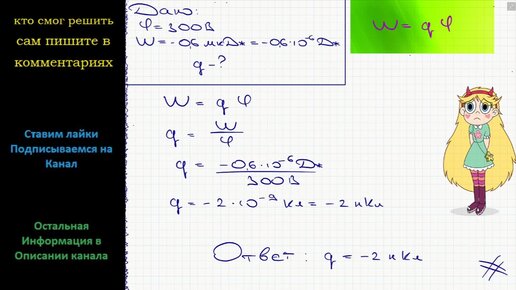 кто смог решить
сам пишите в
комментариях
Ставим лайки
Подписываемся на
Канал
Остальная
Информация в
Описании канала
Дано:
φ = 300 В
W = -0,6 мкДж = -0,6·10⁻⁶ Дж
q - ?
W = q φ
W = q φ
q = W/φ
q = -0,6·10⁻⁶ Дж / 300 В
q = -2·10⁻⁹ Кл = -2 нКл
Ответ: q = -2 нКл